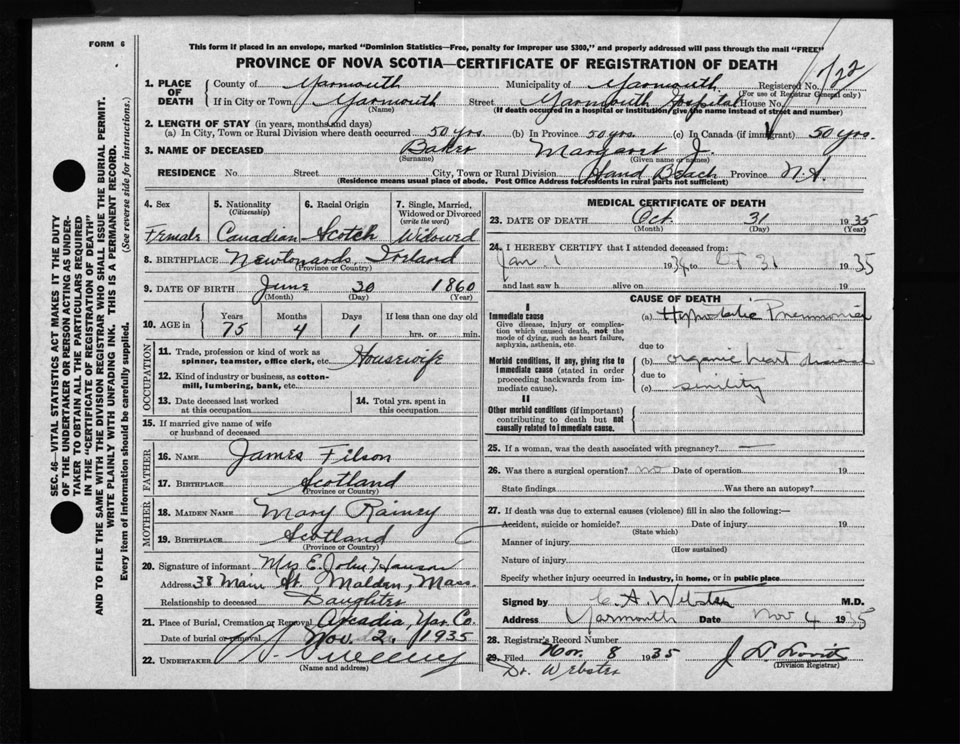 FORM 6
This form if placed in an envelope, marked "Dominion Statistics—Free, penalty for improper use $300," and properly addressed will pass through the mail "FREE"
PROVINCE OF NOVA SCOTIA—CERTIFICATE OF REGISTRATION OF DEATH
SEC. 46—VITAL STATISTICS ACT MAKES IT THE DUTY
OF THE UNDERTAKER OR PERSON ACTING AS UNDER-
TAKER TO OBTAIN ALL THE PARTICULARS REQUIRED
IN THE "CERTIFICATE OF REGISTRATION OF DEATH"
AND TO FILE THE SAME WITH THE DIVISION REGISTRAR WHO SHALL ISSUE THE BURIAL PERMIT.
WRITE PLAINLY WITH UNFADING INK. THIS IS A PERMANENT RECORD.
Every item of information should be carefully supplied. (See reverse side for instructions.)
1. PLACE OF DEATH County of Yarmouth Municipality of Yarmouth Registered No. 722
(Name) (For use of Registrar General only)
If in City or Town Yarmouth Street Yarmouth Hospital House No.
(Name) (If death occurred in a hospital or institution, give the name instead of street and number)
2. LENGTH OF STAY (in years, months and days)
(a) In City, Town or Rural Division where death occurred 50 yrs. (b) In Province 50 yrs. (c) In Canada (if immigrant) 50 yrs.
3. NAME OF DECEASED Baker Margaret J.
(Surname) (Given name or names)
RESIDENCE No. Street City, Town or Rural Division Sand Beach Province N.S.
(Residence means usual place of abode. Post Office Address for residents in rural parts not sufficient)
4. Sex 5. Nationality (Citizenship) 6. Racial Origin 7. Single, Married, Widowed or Divorced (write the word)
Female Canadian Scotch Widowed
8. BIRTHPLACE Newtonards, Ireland
(Province or Country)
9. DATE OF BIRTH June 30 1860
(Month) (Day) (Year)
10. AGE in Years Months Days If less than one day old
75 4 1 hrs. or min.
OCCUPATION
11. Trade, profession or kind of work as spinner, teamster, office clerk, etc. Housewife
12. Kind of industry or business, as cotton-mill, lumbering, bank, etc.
13. Date deceased last worked at this occupation 14. Total yrs. spent in this occupation
15. If married give name of wife or husband of deceased
FATHER
16. NAME James Filson
17. BIRTHPLACE Scotland
(Province or Country)
MOTHER
18. MAIDEN NAME Mary Rainey
19. BIRTHPLACE Scotland
(Province or Country)
20. Signature of informant Mrs E. John Hanson
Address 38 Main St. Malden, Mass.
Relationship to deceased Daughter
21. Place of Burial, Cremation or Removal Arcadia, Yar. Co.
Date of burial or removal Nov. 2, 1935
22. UNDERTAKER Sweeny
(Name and address)
MEDICAL CERTIFICATE OF DEATH
23. DATE OF DEATH Oct. 31 1935
(Month) (Day) (Year)
24. I HEREBY CERTIFY that I attended deceased from:
Jan. 1 1934 to Oct 31 1935
and last saw h alive on 19
CAUSE OF DEATH
I
Immediate cause
Give disease, injury or complication which caused death, not the mode of dying, such as heart failure, asphyxia, asthenia, etc.
(a) Hypostatic Pneumonia
due to
Morbid conditions, if any, giving rise to immediate cause (stated in order proceeding backwards from immediate cause).
(b) organic heart disease
due to
(c) senility
II
Other morbid conditions (if important) contributing to death but not causally related to immediate cause.
25. If a woman, was the death associated with pregnancy? —
26. Was there a surgical operation? no Date of operation 19
State findings Was there an autopsy?
27. If death was due to external causes (violence) fill in also the following:—
Accident, suicide or homicide? Date of injury 19
(State which)
Manner of injury
(How sustained)
Nature of injury
Specify whether injury occurred in industry, in home, or in public place
Signed by C. A. Webster M.D.
Address Yarmouth Date Nov 4 1935
28. Registrar's Record Number
29. Filed Nov. 8 1935
(Division Registrar)
Dr. Webster